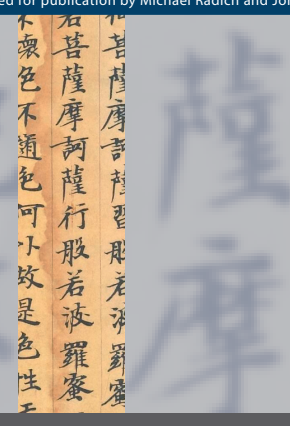 ed for publication by Michael Radich and Jo
菩薩摩訶薩習般若波羅蜜
若菩薩摩訶薩行般若波羅蜜
壞色不適色何以故是色性
薩摩